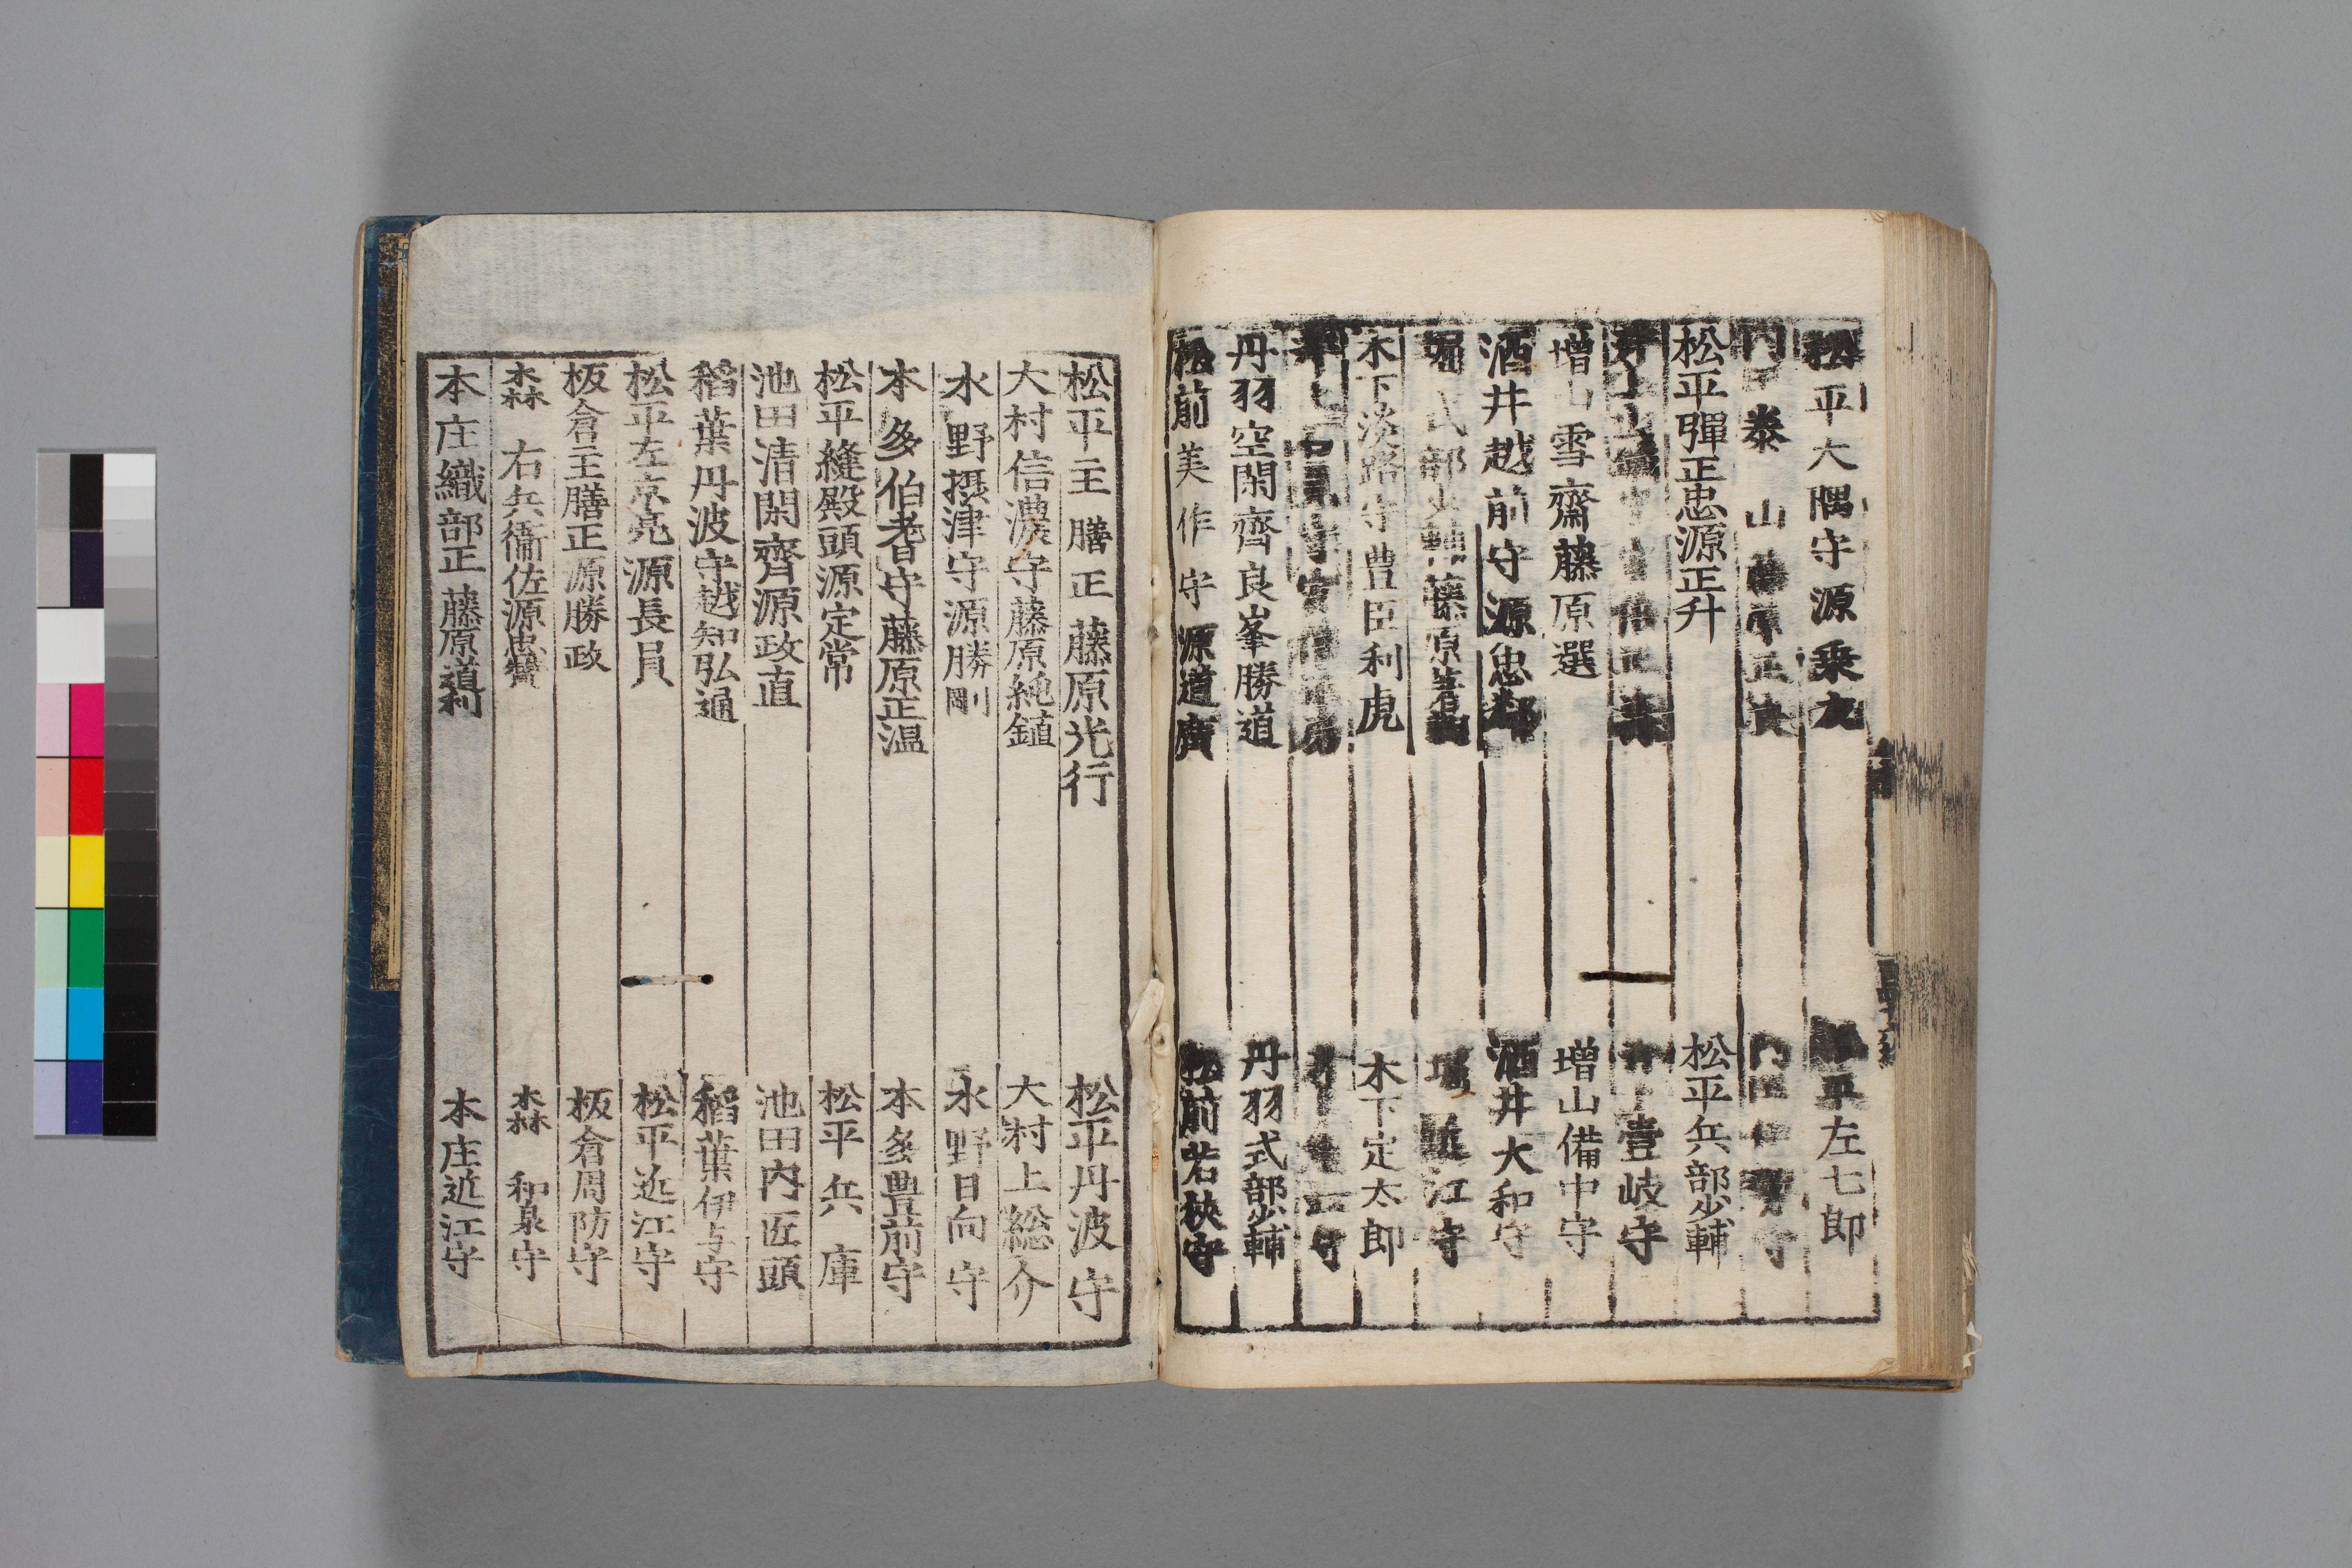 松平大隅守源乗友 松平左七郎
泰山藤原正
松平彈正忠源正升 松平兵部少輔
壹岐守
増山雪齋藤原選 増山備中守
酒井越前守源忠鄰 酒井大和守
堀式部少輔藤原著 堀近江守
木下淡路守豊臣利虎 木下定太郎
丹羽空閑齊良峯勝道 丹羽式部少輔
松前美作守源道廣 松前若狹守
松平主膳正藤原光行 松平丹波守
大村信濃守藤原純鎮 大村上総介
水野摂津守源勝剛 水野日向守
本多伯耆守藤原正温 本多豊前守
松平縫殿頭源定常 松平兵庫
池田清閑齊源政直 池田内匠頭
稻葉丹波守越知弘通 稻葉伊与守
松平左京亮源長員 松平近江守
板倉主膳正源勝政 板倉周防守
森右兵衞佐源忠贊 森和泉守
本庄織部正藤原道利 本庄近江守